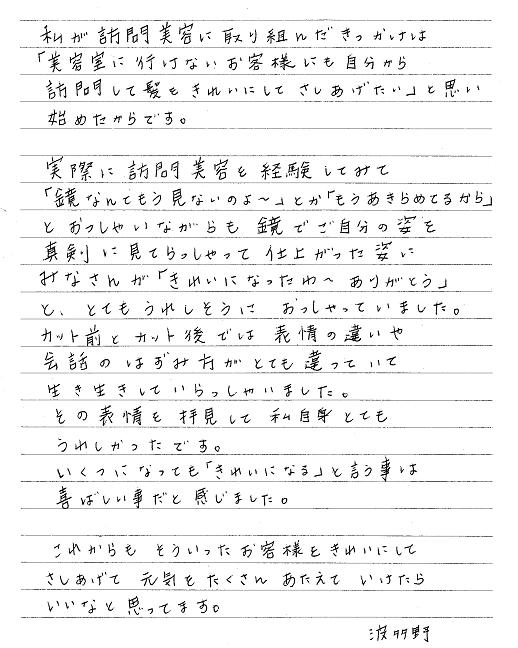 私が訪問美容に取り組んだきっかけは
「美容室に行けないお客様にも自分から
訪問して髪もきれいにしてさしあげたい」と思い
始めたからです。
実際に訪問美容を経験してみて
「鏡なんてもう見ないのよ～」とか「もうあきらめてるから」
とおっしゃいながらも鏡でご自分の姿を
真剣に見てらっしゃって仕上がった姿に
みなさんが「きれいになったわ～ありがとう」
と、とてもうれしそうにおっしゃっていました。
カット前とカット後では表情の違いや
会話のはずみ方がとても違っていて
生き生きしていらっしゃいました。
その表情を拝見して私自身とても
うれしかったです。
いくつになっても「きれいになる」と言う事は
喜ばしい事だと感じました。
これからもそういったお客様をきれいにして
さしあげて元気をたくさんあたえていけたら
いいなと思ってます。
波多野